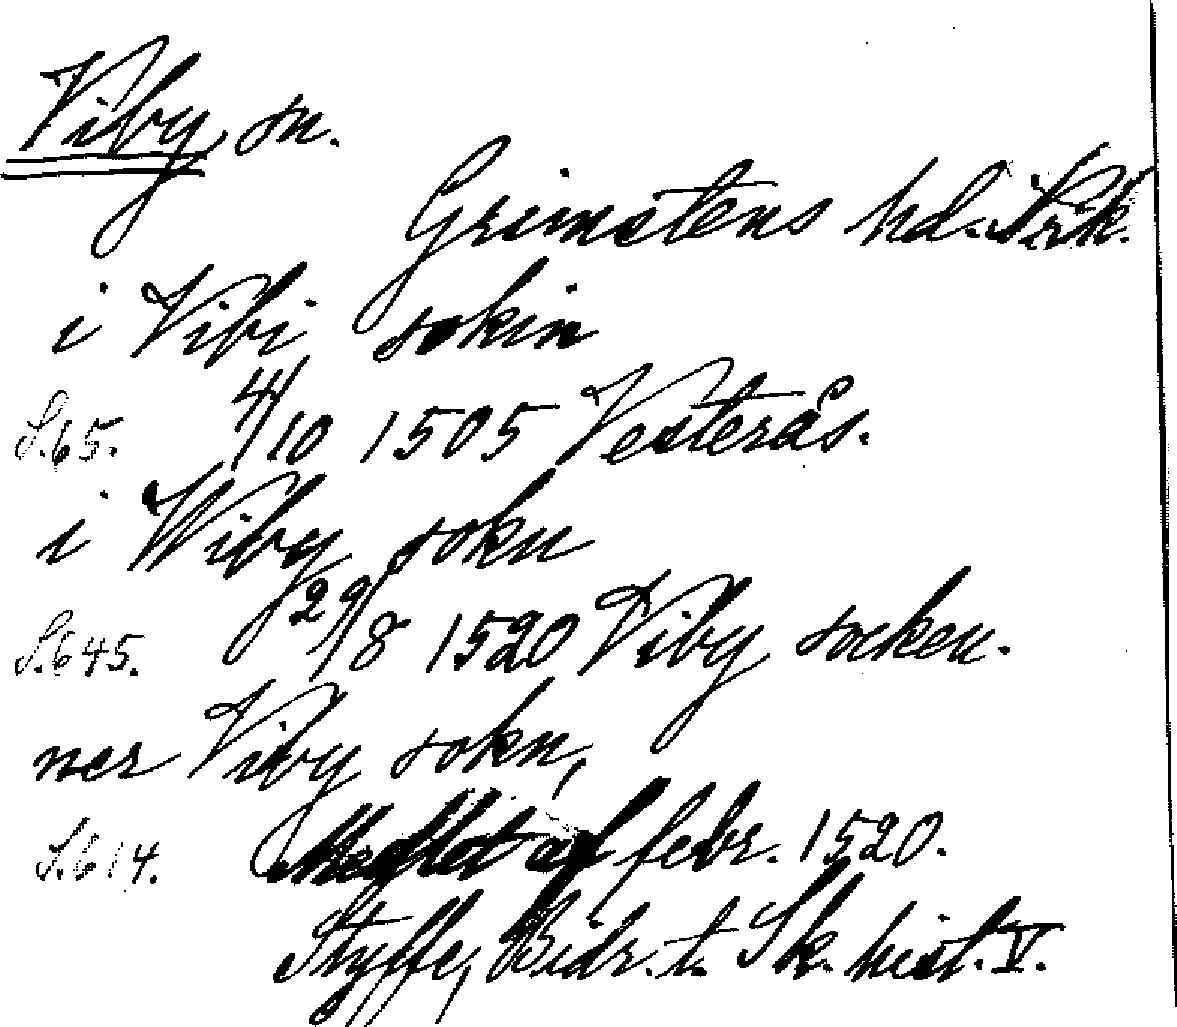 Viby sn.
Grimstens hd. Nrk.
i Vibi sokin
S. 65. 4/10 1505 Vesterås.
i Wiby sokn
S. 645. 29/8 1520 Viby socken.
ner Viby sokn,
S. 614. febr. 1520.
Styffe, Bidr. t. Sk. hist. V.